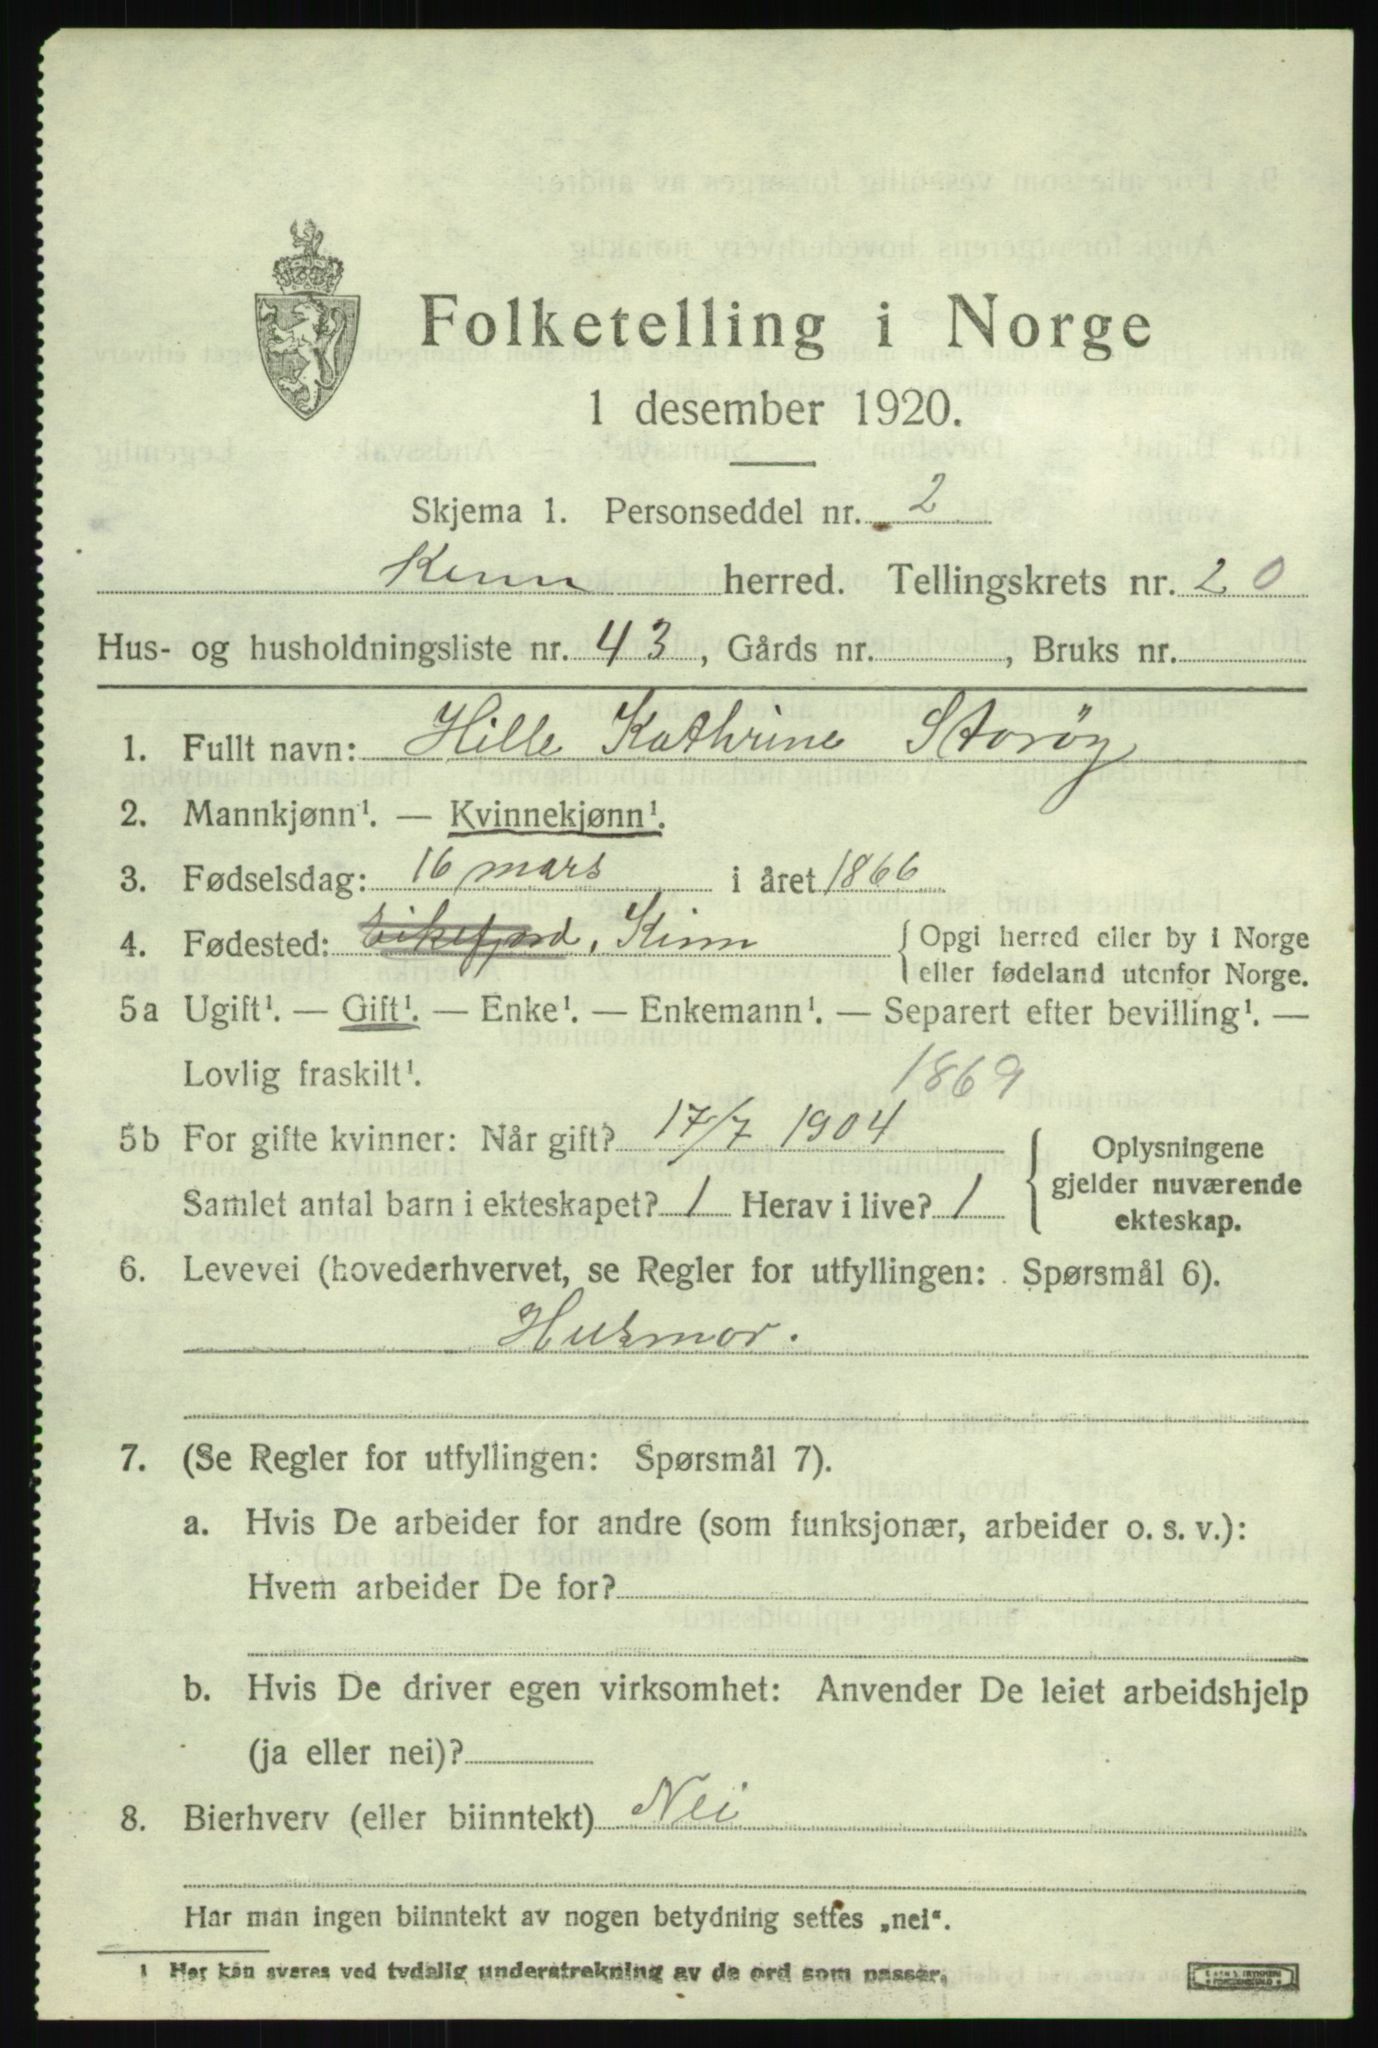 Folketelling i Norge
1 desember 1920.
Skjema 1. Personseddel nr. 2
Kinn herred. Tellingskrets nr. 20
Hus- og husholdningsliste nr. 43, Gårds nr. , Bruks nr.
1. Fullt navn: Hille Kathrine Storøy
2. Mannkjønn¹. — Kvinnekjønn¹.
3. Fødselsdag: 16 mars i året 1866
4. Fødested: Eikefjord, Kinn { Opgi herred eller by i Norge
eller fødeland utenfor Norge.
5a Ugift¹. — Gift¹. — Enke¹. — Enkemann¹. — Separert efter bevilling¹. —
Lovlig fraskilt¹. 1869
5b For gifte kvinner: Når gift? 17/7 1904
Samlet antal barn i ekteskapet? 1 Herav i live? 1
Oplysningene
gjelder nuværende
ekteskap.
6. Levevei (hovederhvervet, se Regler for utfyllingen: Spørsmål 6).
Husmor.
7. (Se Regler for utfyllingen: Spørsmål 7).
a. Hvis De arbeider for andre (som funksjonær, arbeider o. s. v.):
Hvem arbeider De for?
b. Hvis De driver egen virksomhet: Anvender De leiet arbeidshjelp
(ja eller nei)?
8. Bierhverv (eller biinntekt) Nei
Har man ingen biinntekt av nogen betydning settes „nei“.
1 Her kan svares ved tydelig understrekning av de ord som passer.